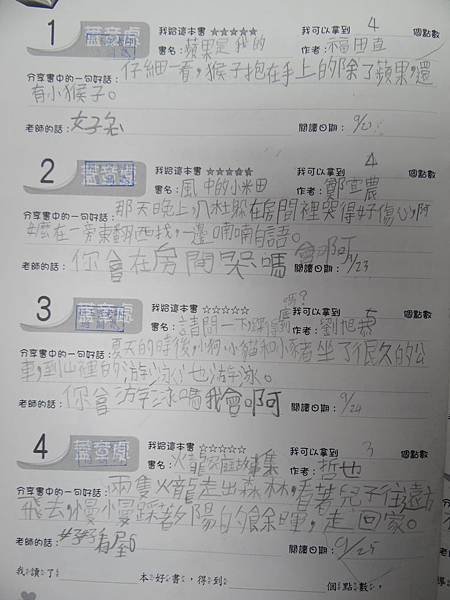 1 我給這本書☆☆☆☆☆ 我可以拿到 4 個點數
書名:蘋果是我的 作者:福田直
分享書中的一句好話:仔細一看,猴子抱在手上的除了蘋果,還
有小猴子。
老師的話: 閱讀日期:9/21
2 我給這本書☆☆☆☆☆ 我可以拿到 4 個點數
書名:風中的小米田 作者:鄭宜農
分享書中的一句好話:那天晚上,八杜躲在房間裡哭得好傷心,阿
麼在一旁東翻西找,一邊喃喃自語。
老師的話:你會在房間哭嗎 會啊 閱讀日期:9/23
3 我給這本書☆☆☆☆☆ 我可以拿到 5 個點數
書名:請問一下,踩得到底嗎? 作者:劉旭恭
分享書中的一句好話:夏天的時後,小狗、小貓和小豬坐了很久的公
車,到山裡的游泳池游泳。
老師的話:你會游泳嗎我會啊 閱讀日期:9/24
4 我給這本書☆☆☆☆☆ 我可以拿到 3 個點數
書名:火龍家庭故事集 作者:哲也
分享書中的一句好話:兩隻火龍走出森林,看著兒子往遠方
飛去,慢慢踩著夕陽的餘暉,走回家。
老師的話: 閱讀日期:9/25
我讀了 本好書,得到 個點數,